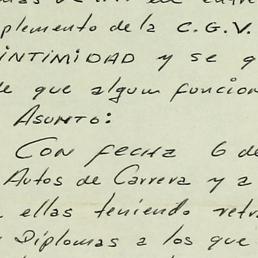 plemento de la C.G.V.
INTIMIDAD y se g
de que algum funcion
ASUNTO:
CON FECHA 6 de
Autos de Carrera y a
ellas teniendo retr
Diplomas a los que